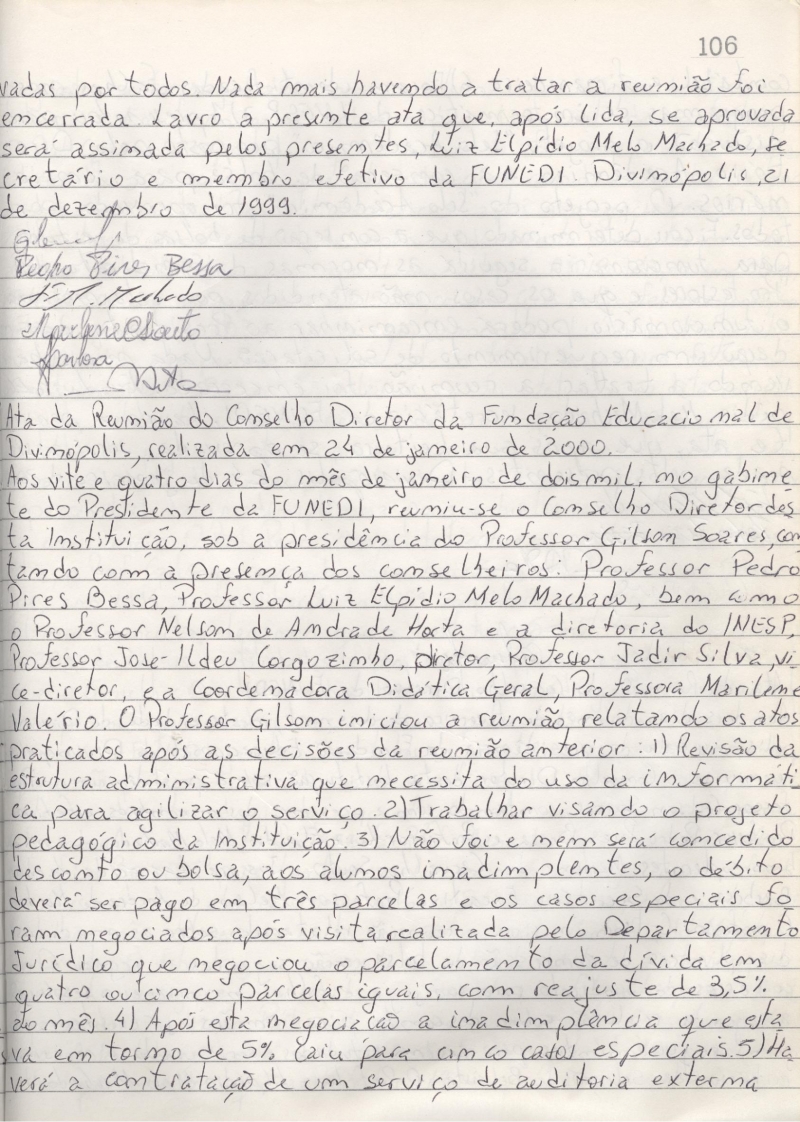 106
vadas por todos. Nada mais havendo a tratar a reunião foi
encerrada. Lavro a presente ata que, após lida, se aprovada
será assinada pelos presentes, Luiz Elpídio Melo Machado, se
cretário e membro efetivo da FUNEDI. Divinópolis, 21
de dezembro de 1999.
Pedro Pires Bessa
L. M. Machado
Ata da Reunião do Conselho Diretor da Fundação Educacional de
Divinópolis, realizada em 24 de janeiro de 2000.
Aos vite e quatro dias do mês de janeiro de dois mil, no gabine
te do Presidente da FUNEDI, reuniu-se o Conselho Diretor des
ta Instituição, sob a presidência do Professor Gilson Soares, con
tando com a presença dos conselheiros: Professor Pedro
Pires Bessa, Professor Luiz Elpídio Melo Machado, bem como
o Professor Nelson de Andrade Horta e a diretoria do INESP,
Professor José Ildeu Gorgozinho, diretor, Professor Jadir Silva, vi
ce-diretor, e a Coordenadora Didática Geral, Professora Marilene
Valério. O Professor Gilson iniciou a reunião relatando os atos
praticados após as decisões da reunião anterior: 1) Revisão da
estrutura administrativa que necessita do uso da informáti
ca para agilizar o serviço. 2) Trabalhar visando o projeto
pedagógico da Instituição. 3) Não foi e nem será concedido
desconto ou bolsa, aos alunos inadimplentes, o débito
deverá ser pago em três parcelas e os casos especiais fo
ram negociados após visita realizada pelo Departamento
Jurídico que negociou o parcelamento da dívida em
quatro ou cinco parcelas iguais, com reajuste de 3,5%
ao mês. 4) Após esta negociação a inadimplência que esta
va em torno de 5% caiu para cinco casos especiais. 5) Ha
verá a contratação de um serviço de auditoria externa